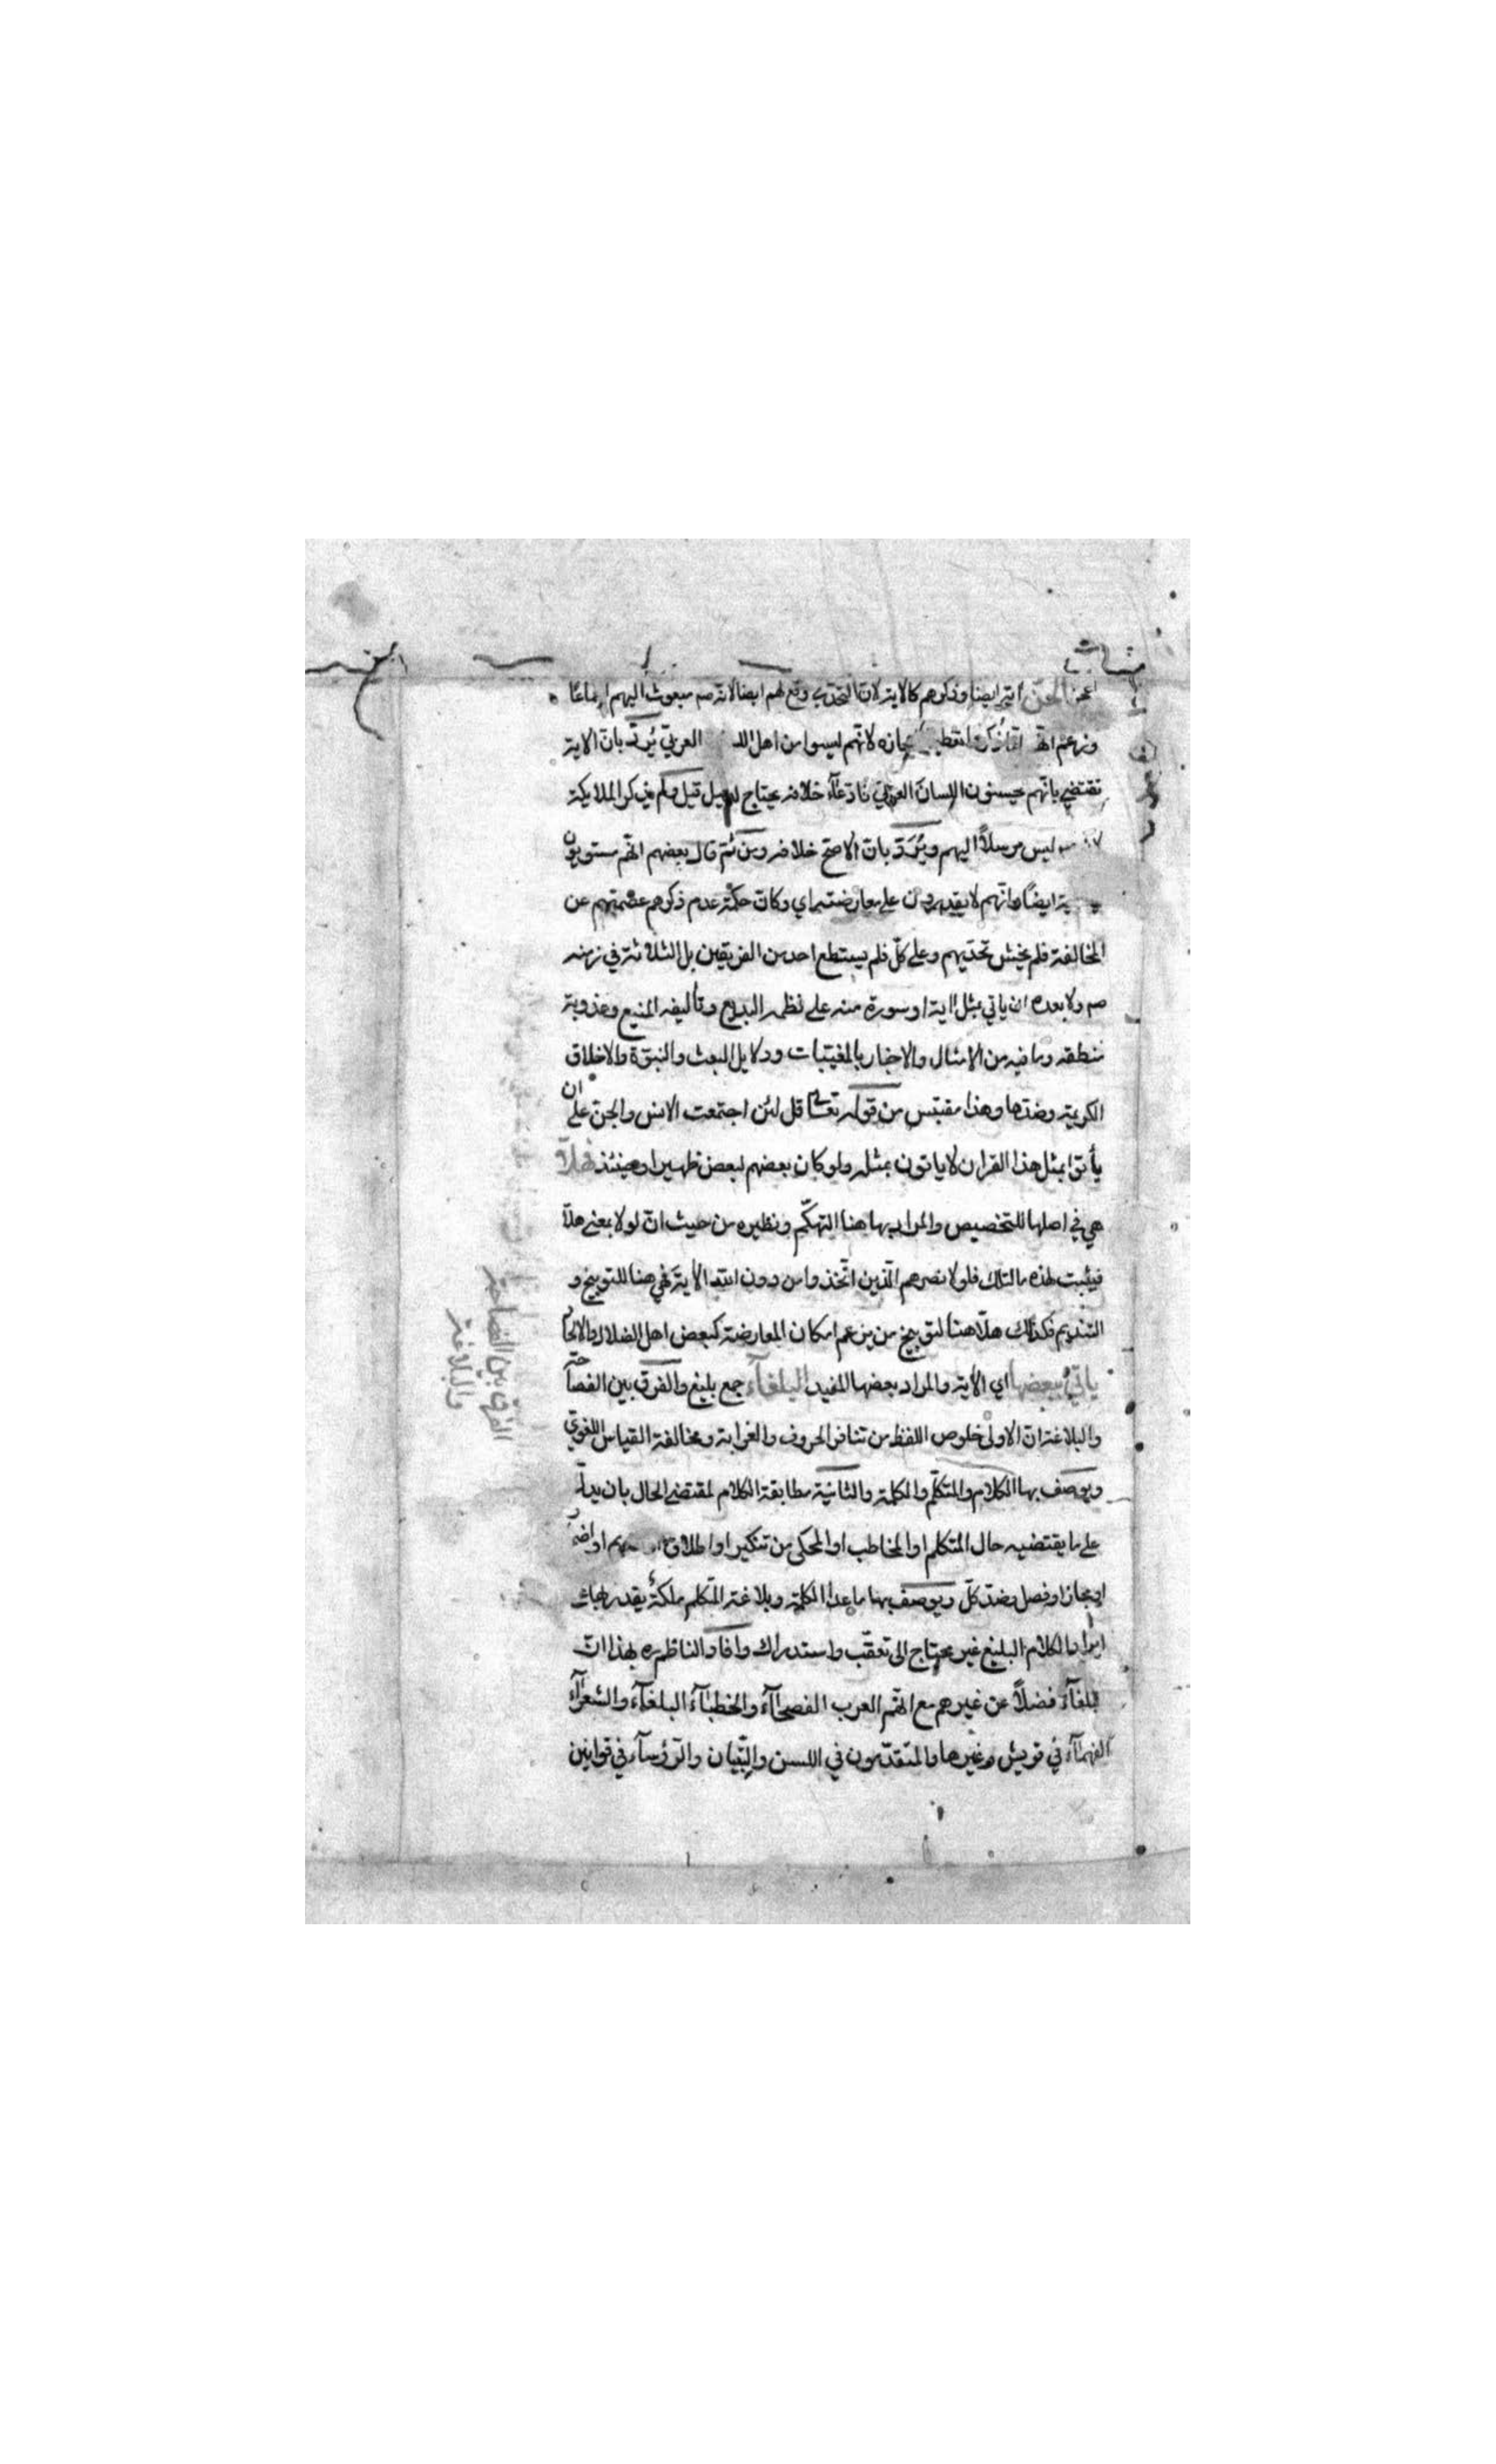 اعجز الجن آية ايضا وذكرهم كالاية لان التحدي وقع لهم ايضا لانه صم مبعوث اليهم اجماعًا
وزعم انهم لتعظيم اعجازه لانهم ليسوا من اهل اللسان العربيّ يُردّ بانّ الاية
تقتضي بانّهم يحسنون اللسانَ العربيّ فادّعآء خلافه يحتاج لدليل قيل ولم يذكر الملايكة
ليس مرسلاً اليهم ويُرَدّ بانّ الاصحّ خلافه ومن ثَمّ قال بعضهم انّهم مستويون
ايضًا وانّهم لا يقدرون على معارضته اي وكانّ حكمة عدم ذكرهم عصمتهم عن
المخالفة فلم يخش تحدّيهم وعلى كلّ فلم يستطع احد من الفريقين بل الثلاثة في زمنه
صم ولا بعده ان ياتي بمثل اية او سورة منه على نظمه البديع وتأليفه المنيع وعذوبة
منطقه وما فيه من الامثال والاخبار بالمغيّبات ودلايل البعث والنبوّة والاخلاق
الكريمة وضدّها وهذا مقتبس من قوله تعالى قل لئن اجتمعت الانس والجنّ على ان
يأتوا بمثل هذا القران لا ياتون بمثله ولو كان بعضهم لبعض ظهيرا وحينئذ فهلّا
هي في اصلها للتخصيص والمراد بها هنا التهكّم ونظيره من حيث انّ لولا بمعنى هلّا
فيثبت لهذه ما لتلك فلولا نصرهم الّذين اتّخذوا من دون الله الأية فهي هنا للتوبيخ و
التنديم فكذلك هلّا هنا لتوبيخ من يزعم امكان المعارضة كبعض اهل الضلال والالحاد
ياتيُ ببعضها اي الأية والمراد ببعضها المفيد البلغآء جمع بليغ والفرق بين الفصاحة
والبلاغة انّ الاولى خلوص اللفظ من تنافر الحروف والغرابة ومخالفة القياس اللغويّ
ويوصف بها الكلام والمتكلّم والكلمة والثانية مطابقة الكلام لمقتضى الحال بان يدلّ
على ما يقتضيه حال المتكلم او المخاطب او المحكى من تنكير او اطلاق او
ايجاز او فصل وضدّ كلّ ويوصف بها ما عدا الكلمة وبلاغة المتكلم ملكةٌ يقدر بها على
ايراد الكلام البليغ غير محتاج الى تعقّب واستدراك وافاد الناظم ره بهذا انّ
البلغآء فضلاً عن غيرهم مع انّهم العرب الفصحآء والخطبآء البلغآء والشعرآء
الفهمآء في قريش وغيرها والمتقدّمون في اللسن والبيان والرّؤسآء في قوانين
الفرق بين الفصاحة
والبلاغة